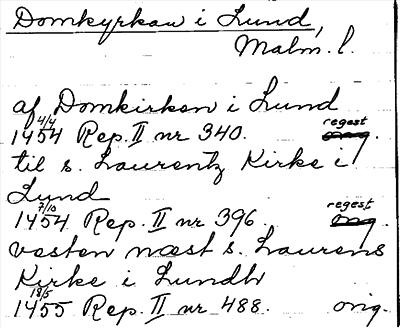 Domkyrkan i Lund,
Malm. l.
af Domkirken i Lund
1454 4/4 Rep. II nr 340. regest orig.
til s. Laurentz Kirke i
Lund
1454 7/10 Rep. II nr 396. regest orig.
vesten næst s. Laurens
Kirke i Lundh
1455 18/5 Rep. II nr 488. orig.